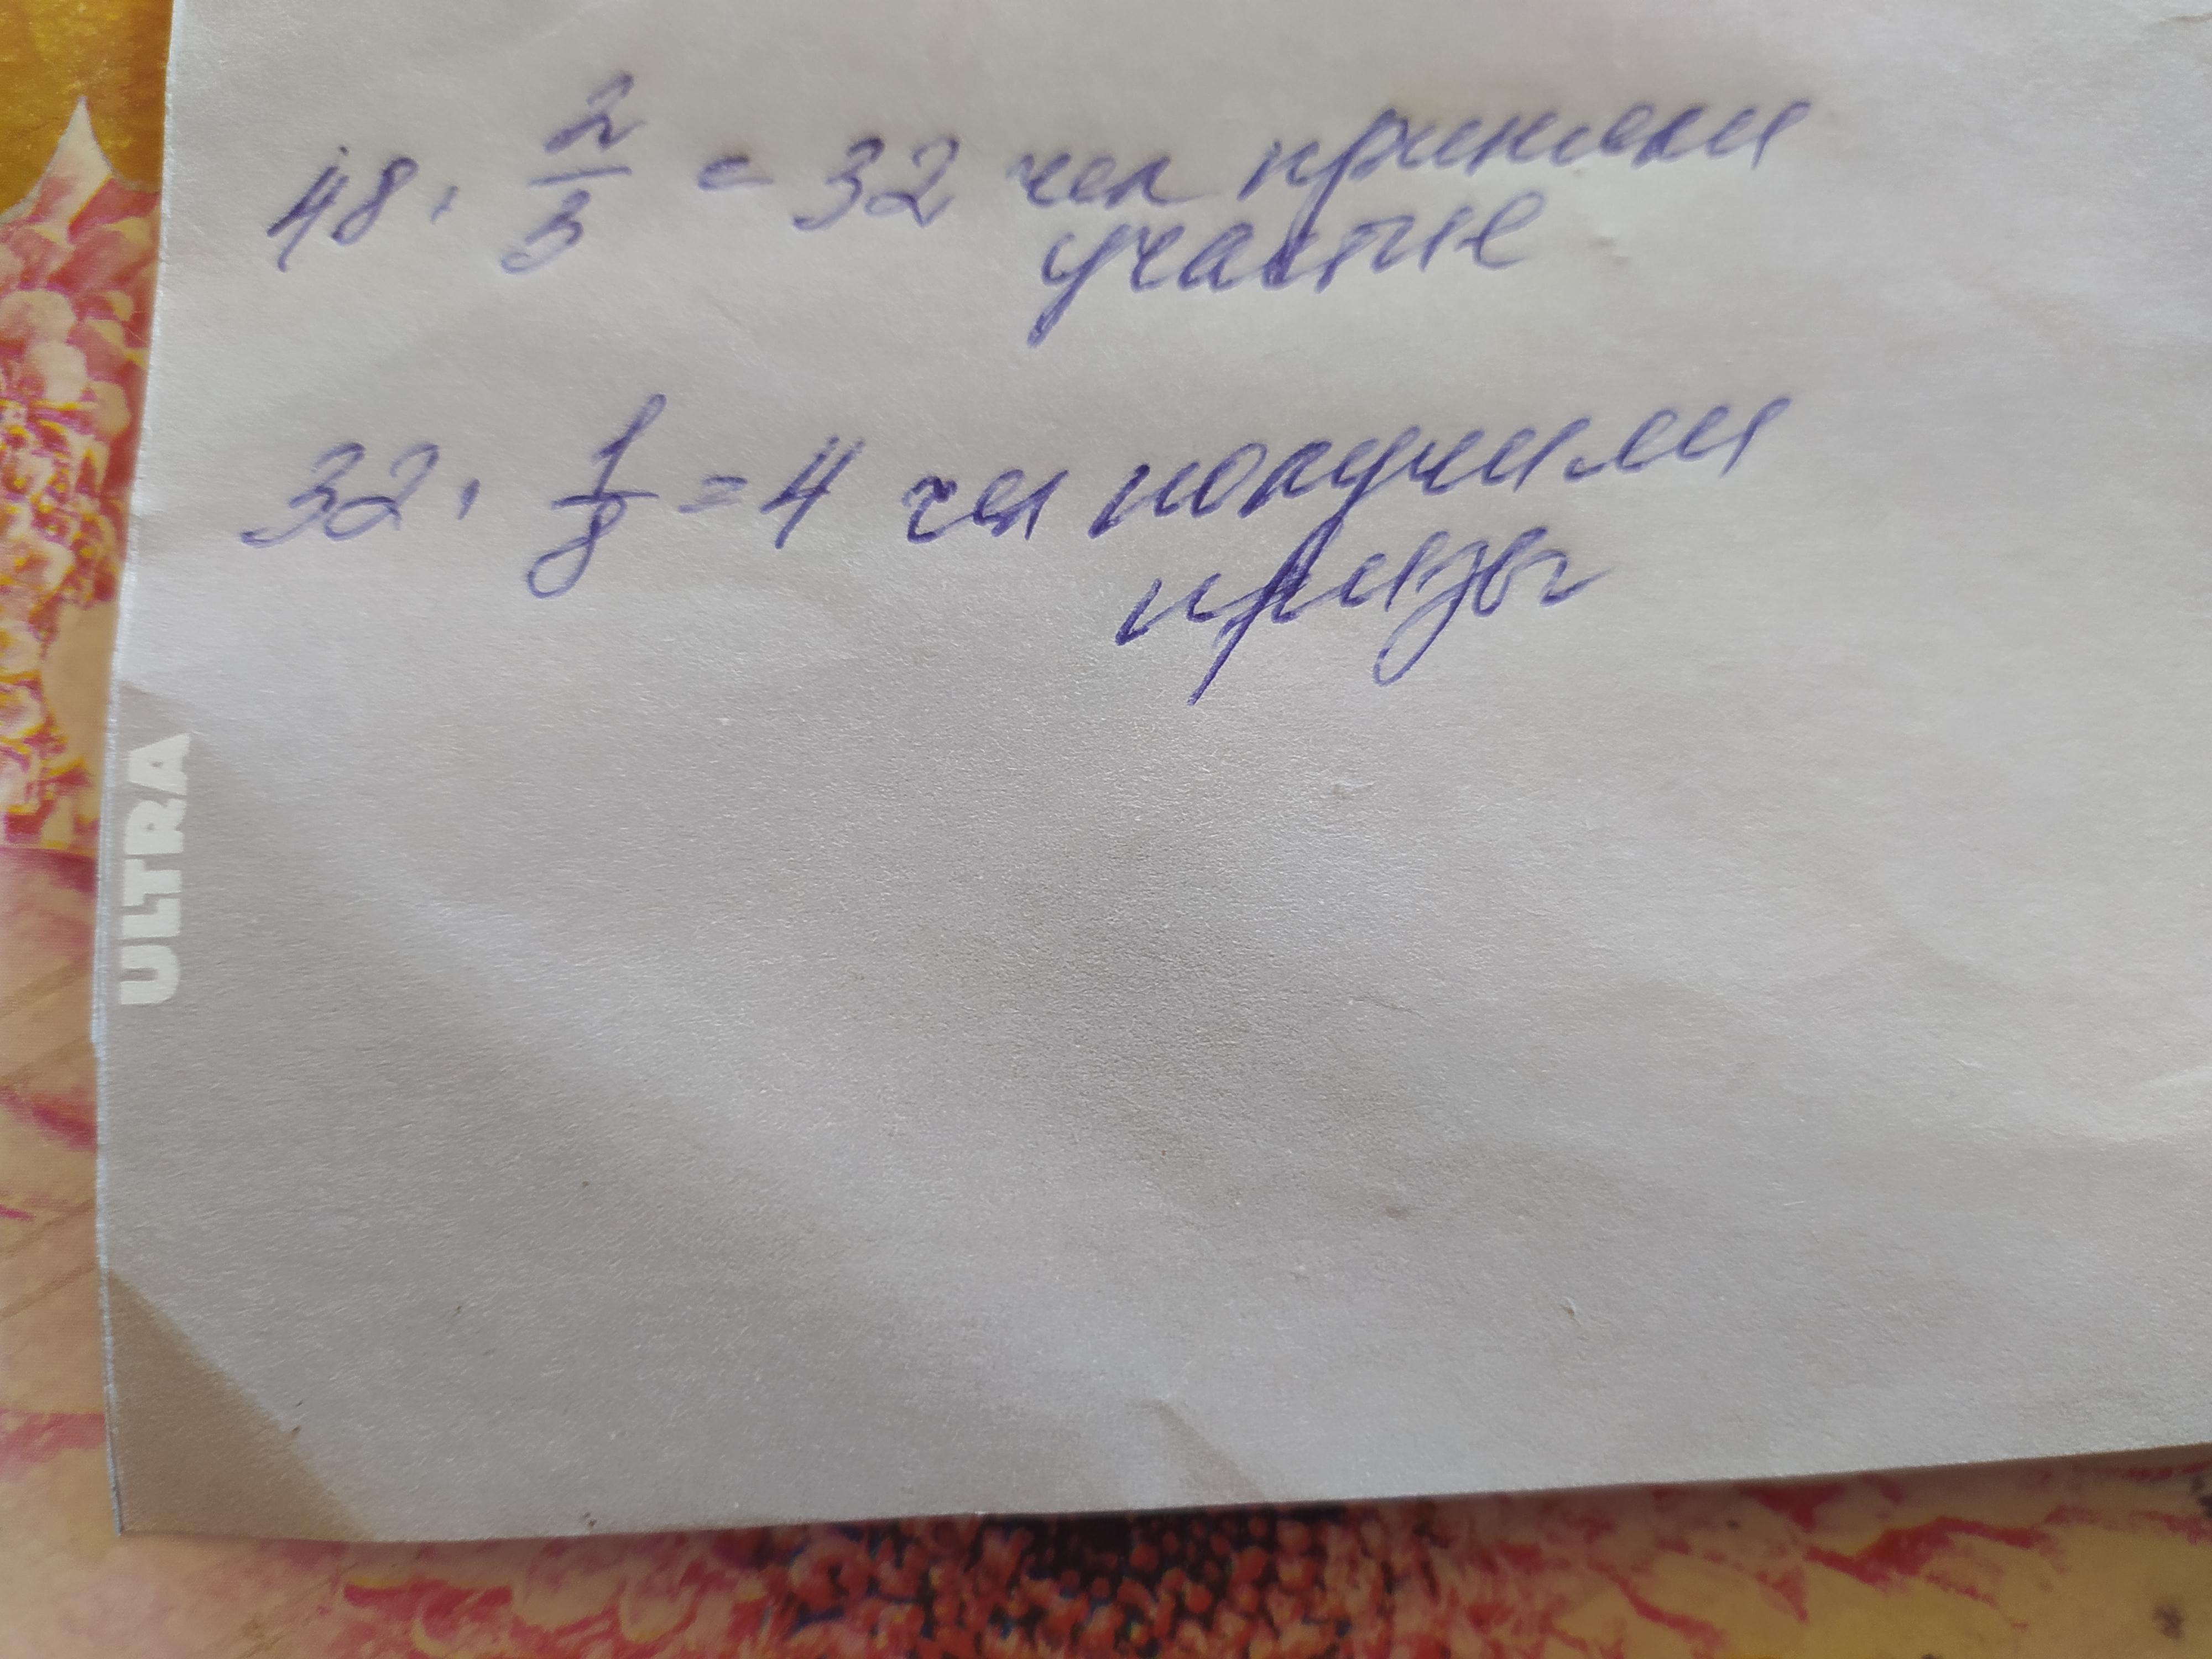 48 · 2/3 = 32 чел приняли
участие
32 · 1/8 = 4 чел получили
призы
ULTRA